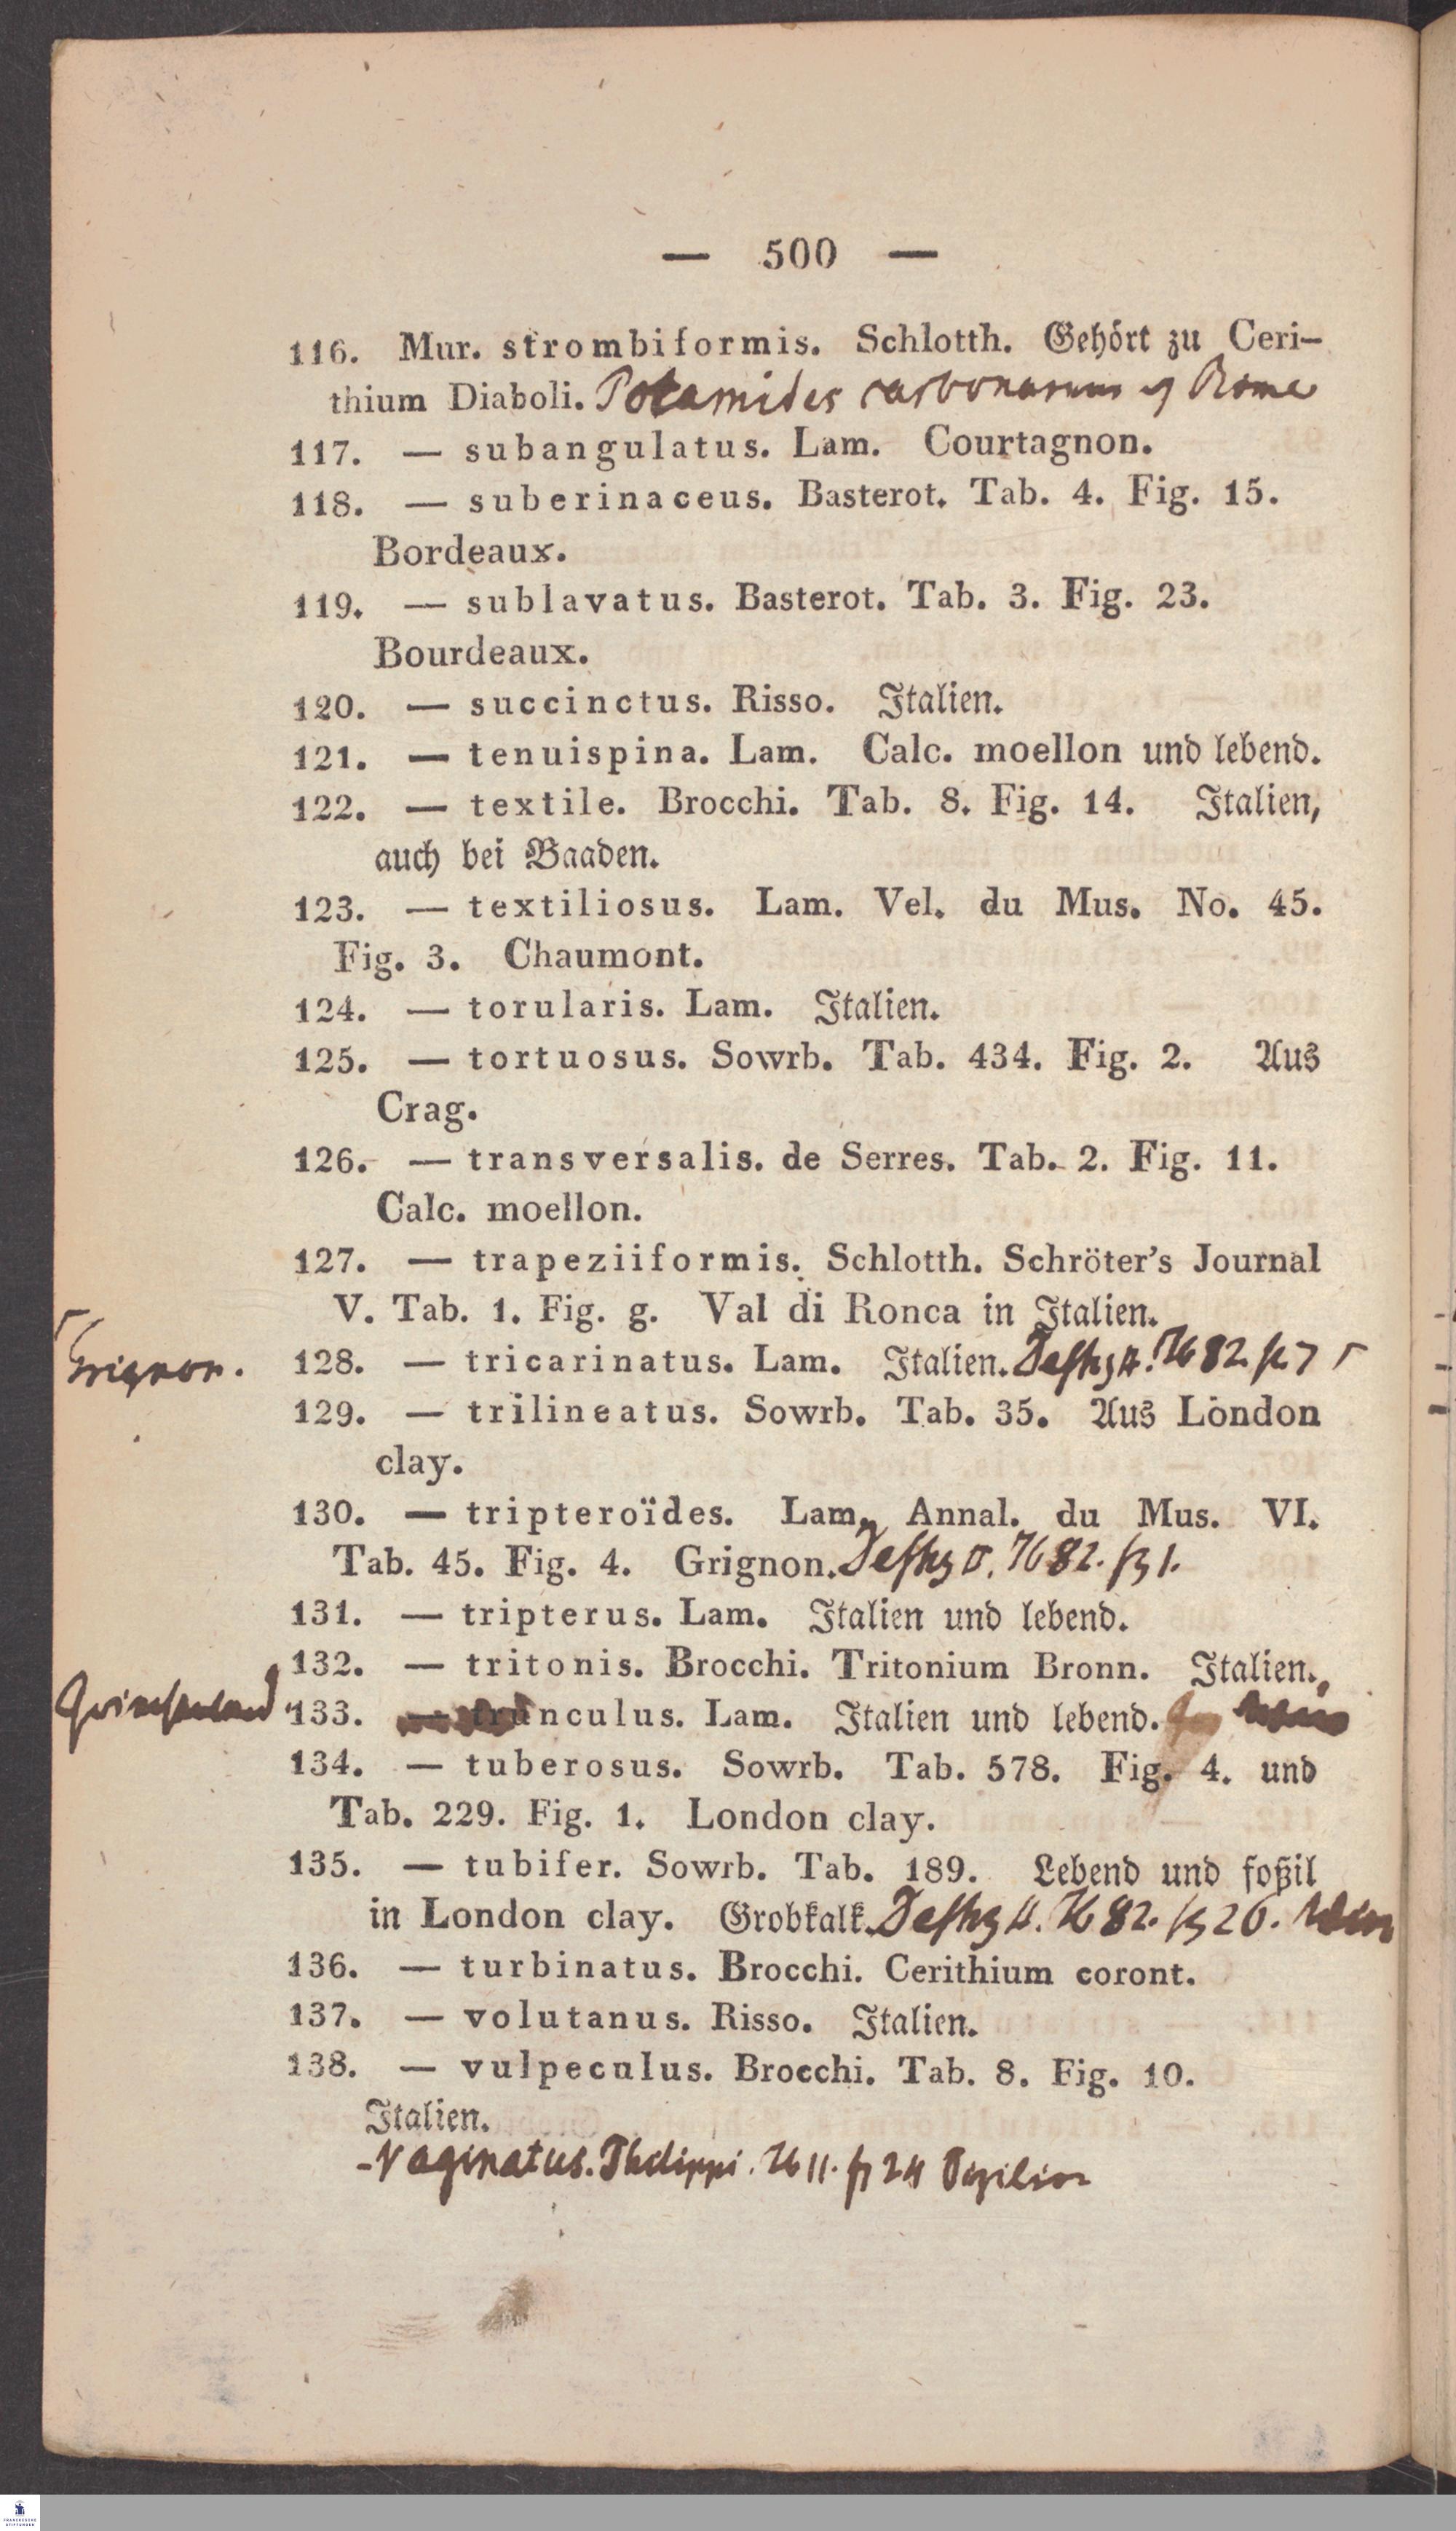 — 500 —
116. Mur. strombiformis. Schlotth. Gehört zu Ceri-
thium Diaboli. Potamides carbonarum
117. — subangulatus. Lam. Courtagnon.
118. — suberinaceus. Basterot. Tab. 4. Fig. 15.
Bordeaux.
119. — sublavatus. Basterot. Tab. 3. Fig. 23.
Bourdeaux.
120. — succinctus. Risso. Italien.
121. — tenuispina. Lam. Calc. moellon und lebend.
122. — textile. Brocchi. Tab. 8. Fig. 14. Italien,
auch bei Baaden.
123. — textiliosus. Lam. Vel. du Mus. No. 45.
Fig. 3. Chaumont.
124. — torularis. Lam. Italien.
125. — tortuosus. Sowrb. Tab. 434. Fig. 2. Aus
Crag.
126. — transversalis. de Serres. Tab. 2. Fig. 11.
Calc. moellon.
127. — trapeziiformis. Schlotth. Schröter's Journal
V. Tab. 1. Fig. g. Val di Ronca in Italien.
Grignon. 128. — tricarinatus. Lam. Italien. 82.
129. — trilineatus. Sowrb. Tab. 35. Aus London
clay.
130. — tripteroïdes. Lam. Annal. du Mus. VI.
Tab. 45. Fig. 4. Grignon. 82.
131. — tripterus. Lam. Italien und lebend.
132. — tritonis. Brocchi. Tritonium Bronn. Italien.
133. — trunculus. Lam. Italien und lebend.
134. — tuberosus. Sowrb. Tab. 578. Fig. 4. und
Tab. 229. Fig. 1. London clay.
135. — tubifer. Sowrb. Tab. 189. Lebend und foßil
in London clay. Grobkalk. 82.
136. — turbinatus. Brocchi. Cerithium coront.
137. — volutanus. Risso. Italien.
138. — vulpeculus. Brocchi. Tab. 8. Fig. 10.
Italien.
- Vaginatus. Philippi. 11. 24
FRANCKESCHE
STIFTUNGEN